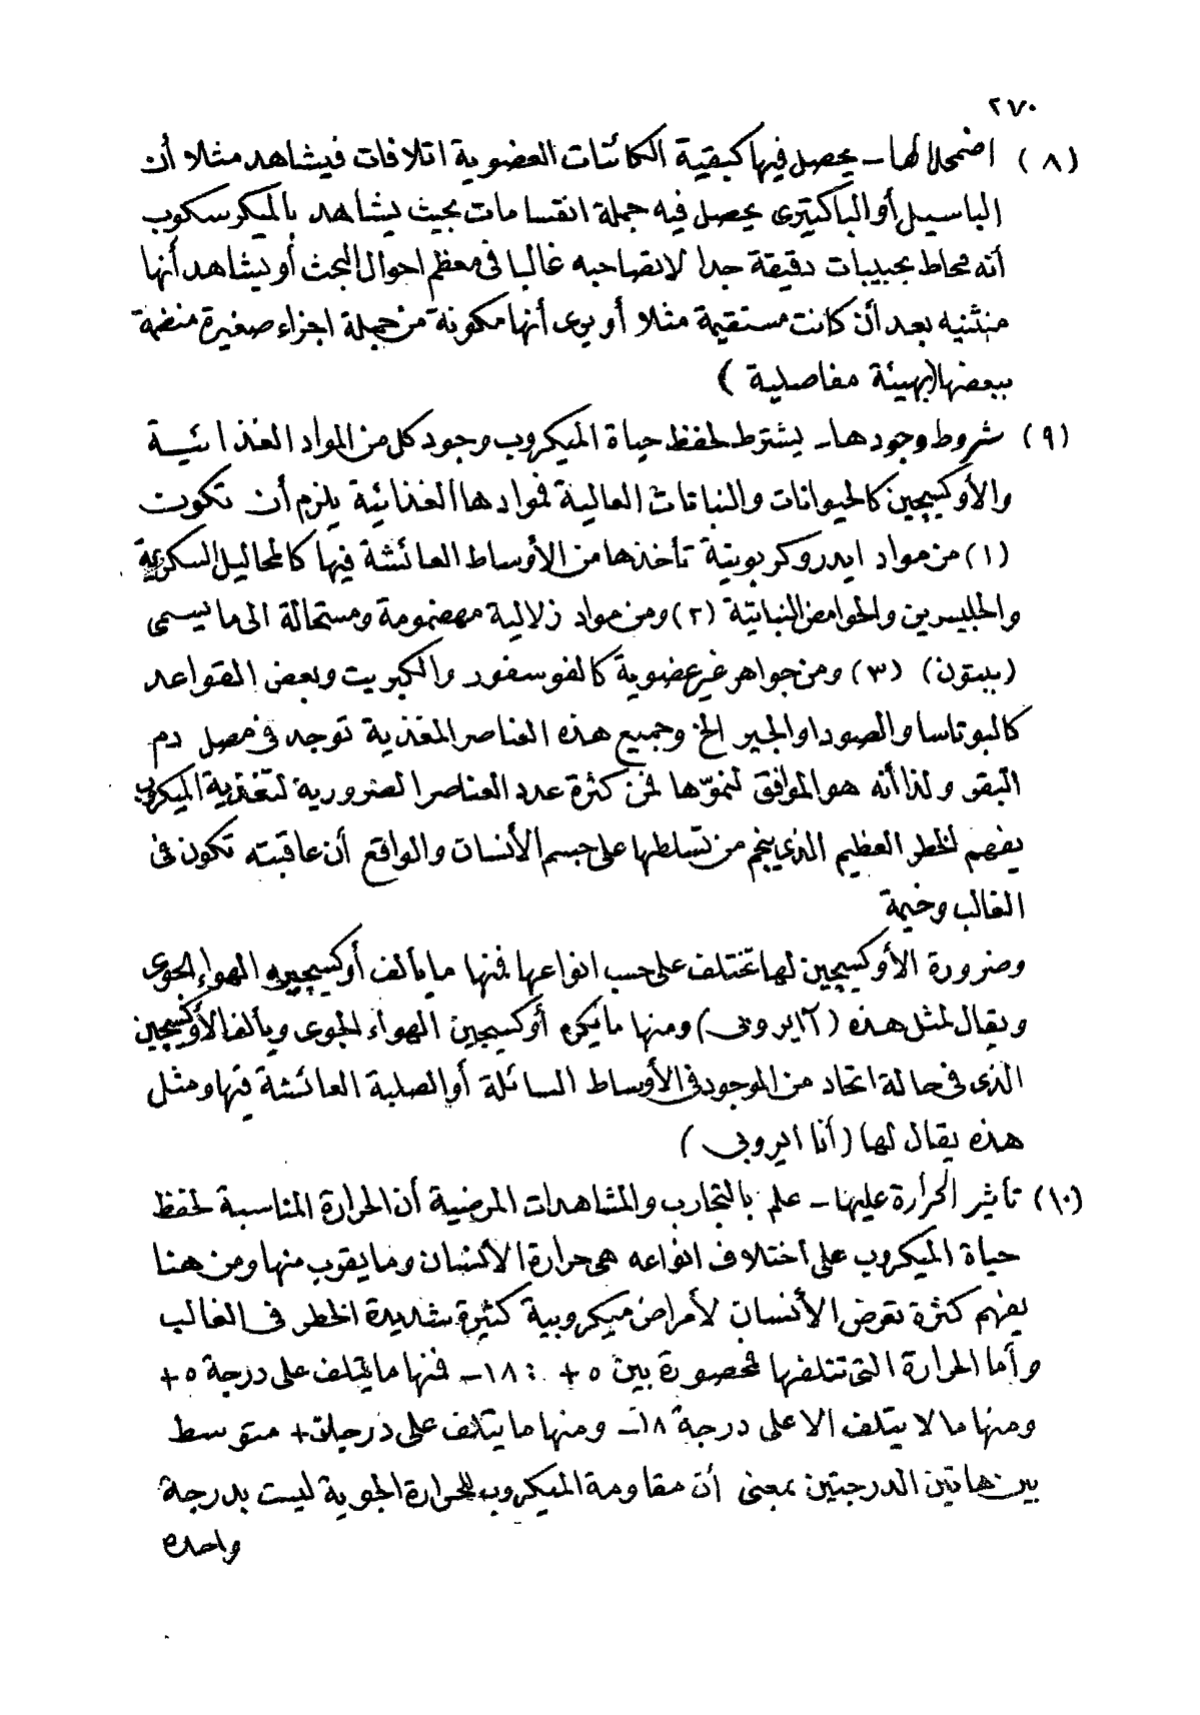 ٢٧٠
(٨) اضمحلالها ــ يحصل فيها كبقية الكائنات العضوية اتلافات فيشاهد مثلا أن
الباسيل أو الباكتيرى يحصل فيه جملة انقسامات بحيث يشاهد بالميكرسكوب
أنه محاط بحبيبات دقيقة جدا لاتصاحبه غالبا فى معظم احوال البحث أو يشاهد أنها
منثنيه بعد أن كانت مستقيمة مثلا أو يرى أنها مكونة من جملة اجزاء صغيرة منضمة
ببعضها (بهيئة مفاصلية)
(٩) شروط وجودها ــ يشترط لحفظ حياة الميكروب وجود كل من المواد الغذائية
والأوكسيجين كالحيوانات والنباتات العالية فموادها الغذائية يلزم أن تكون
(١) من مواد ايدروكربونية تأخذها من الأوساط العائشة فيها كالمحاليل السكرية
والجليسرين والحوامض النباتية (٢) ومن مواد زلالية مهضومة ومستحالة الى ما يسمى
(ببتون) (٣) ومن جواهر غير عضوية كالفوسفور والكبريت وبعض القواعد
كالبوتاسا والصودا والجير الخ وجميع هذه العناصر المغذية توجد فى مصل دم
البقر ولذا أنه هو الموافق لنموّها فمن كثرة عدد العناصر الضرورية لتغذية الميكروب
يفهم الخطر العظيم الذى ينجم من تسلطها على جسم الأنسان والواقع أن عاقبته تكون فى
الغالب وخيمة
وضرورة الأوكسيجين لها تختلف على حسب انواعها فمنها ما يألف أوكسيجين الهواء الجوى
ويقال لمثل هذه (آايروبى) ومنها ما يكره أوكسيجين الهواء الجوى ويألف الأوكسيجين
الذى فى حالة اتحاد من الموجود فى الأوساط السائلة أو الصلبة العائشة فيها ومثل
هذه يقال لها (أنا ايروبى)
(١٠) تأثير الحرارة عليها ــ علم بالتجارب والمشاهدات المرضية أن الحرارة المناسبة لحفظ
حياة الميكروب على أختلاف انواعه هى حرارة الأنسان وما يقرب منها ومن هنا
يفهم كثرة تعرض الأنسان لأمراض ميكروبية كثيرة شديدة الخطر فى الغالب
وأما الحرارة التى تتلفها فمحصورة بين ٥ + : ١٨ ــ فمنها ما يتلف على درجة ٥ +
ومنها ما لا يتلف الا على درجة ١٨ ــ ومنها ما يتلف على درجات + متوسط
بين هاتين الدرجتين بمعنى أن مقاومة الميكروب للحرارة الجوية ليست بدرجة
واحده